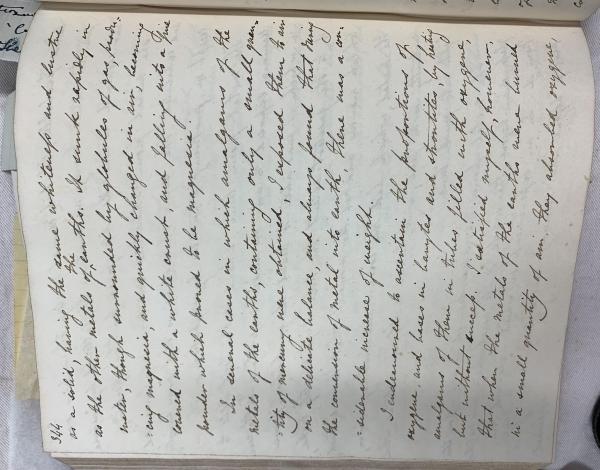 344
as a solid, having the same whiteness and lustre
as the other metals of the earths. It sunk rapidly in
water, though surrounded by globules of gas, produ-
:cing magnesia, and quickly changed in air, becoming
covered with a white crust, and falling into a fine
powder which proved to be magnesia.
In several cases in which amalgams of the
metals of the earths, containing only a small quan-
tity of mercury were obtained, I exposed them to air
on a delicate balance, and always found that during
the conversion of metal into earth, there was a con-
:siderable increase of weight.
I endeavoured to ascertain the proportions of
oxygene and basis in barytes and strontites, by heating
amalgams of them in tubes filled with oxygene,
but without success. I satisfied myself, however,
that when the metals of the earths were burned
in a small quantity of air they absorbed oxygene,